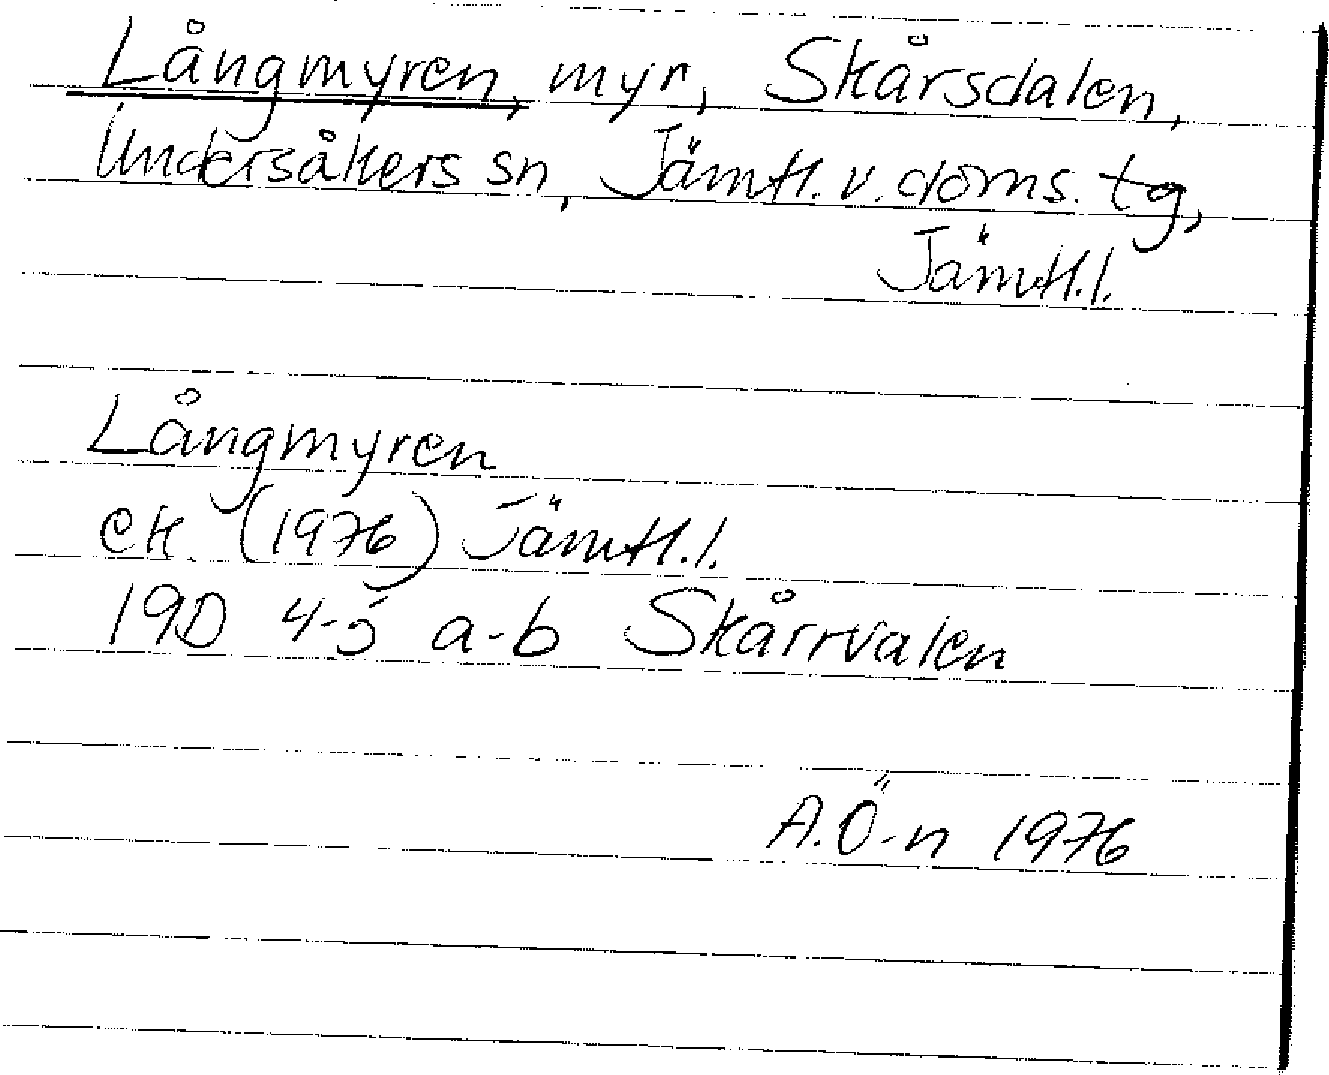 Långmyren, myr, Skårsdalen,
Undersåkers sn, Jämtl. v. doms. tg,
Jämtl.l.
Långmyren
ek. (1976) Jämtl.l.
19D 4-5 a-b Skårrvalen
A.Ö-n 1976